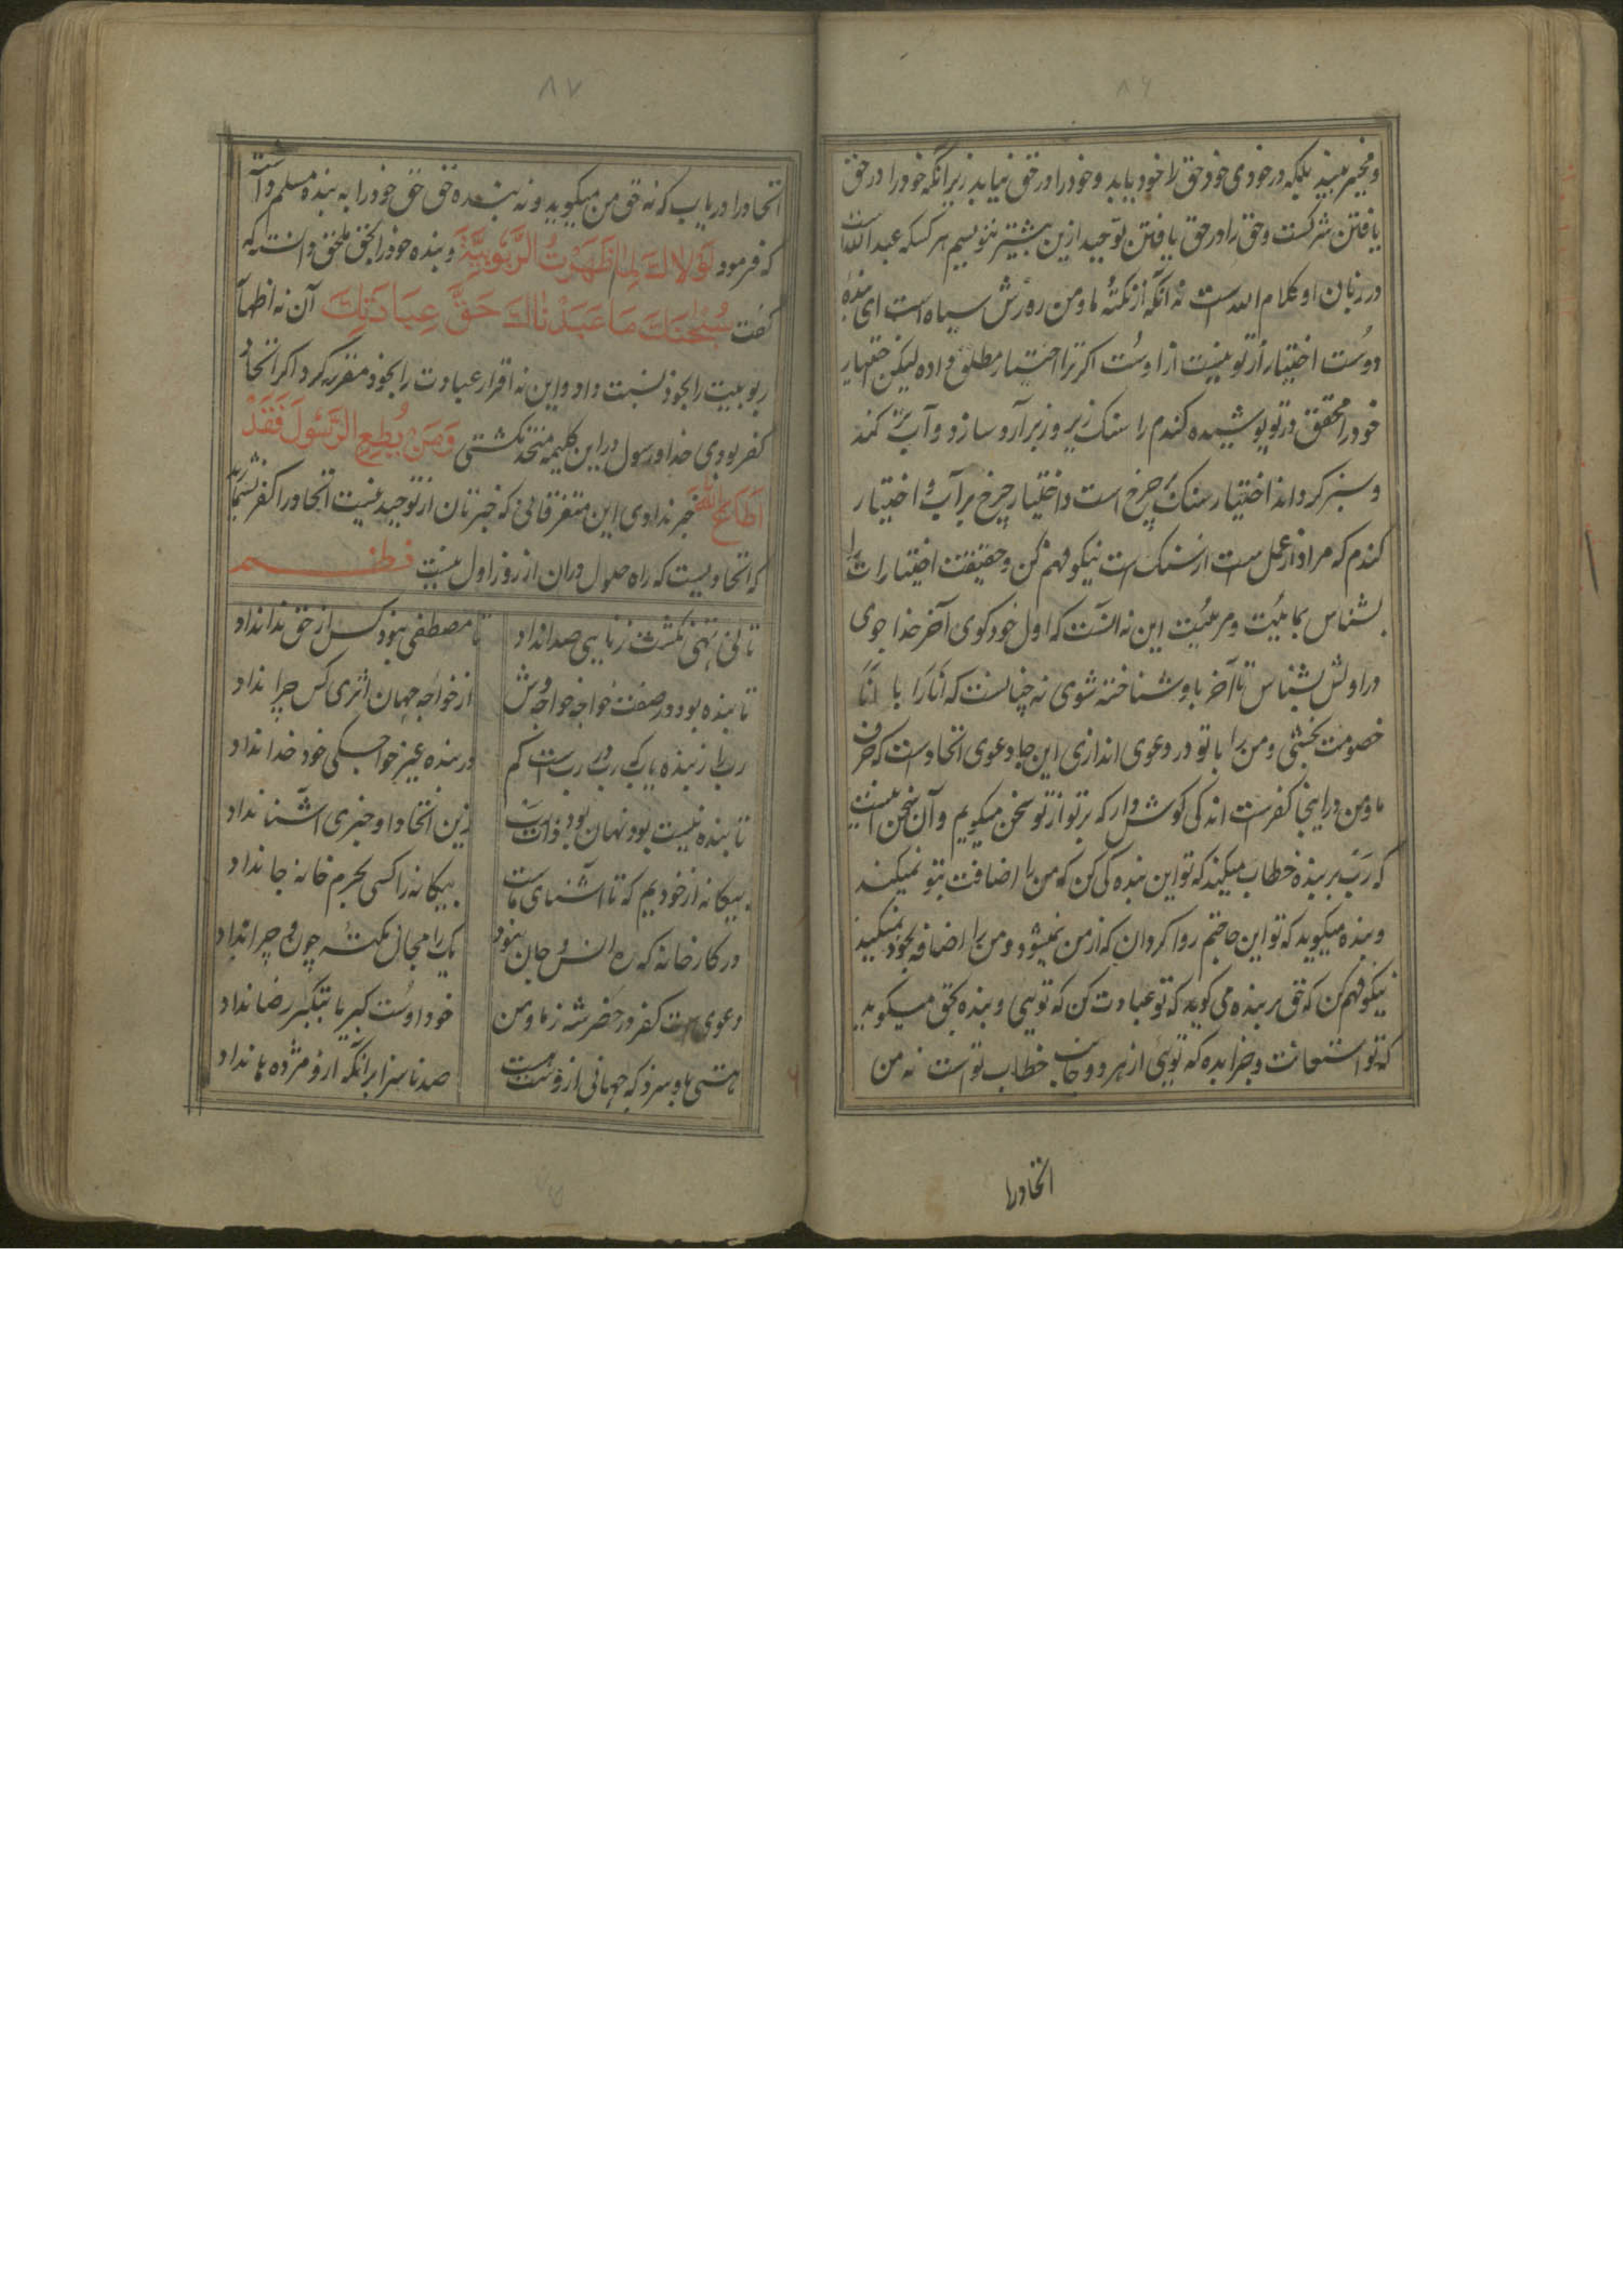 ۸۶
و مخیر نبیند بلکه در خودی خود حق را خود بیابد و خود را در حق نیابد زیرا آنکه خود را در حق
یافتن شرکست و حق را در حق یافتن توحید ازین بیشتر ننویسم هر کسکه عبد الله است
در زبان او کلام الله است نه آنکه از نکتهٔ ما و من رو رش سیاه است ای بندهٔ
دوست اختیار از تو نیست از اوست اگر ترا اختیار مطلق داده لیکن اختیار
خود را محقق در تو پوشیده کندم را سنک زیر و زبر آرد سازد و آب تر کند
و سبز کرداند اختیار سنک بر چرخ است و اختیار چرخ بر آب و اختیار
کندم که مراد از عمل است از سنک است نیکو فهم کن و حقیقت اختیارات را
بشناس بماهیّت و مرئیّت این نه آنست که اول خود کوی آخر خدا جوی
در اولش بشناس تا آخر باو شناخته شوی نه چنانست که اَنَا را با اَنَا
خصومت بخشی و من را با تو در دعوی اندازی این جا دعوی اتحاد است که حرف
ما و من در اینجا کفر است اندکی کوش دار که بر تو از تو سخن میکویم و آن سخن اینست
که رَبّ بر بنده خطاب میکند که تو این بنده کی کن که من را اضافت بتو نمیکند
و بنده میکوید که تو این حاجتم روا کردان که از من نمیشود و من را اضافه بخود نمیکند
نیکو فهم کن که حق بر بنده می کوید که تو عبادت کن که تویی و بنده بحق میکوید
که تو استعانت و جزا بده که تویی از هر دو جانب خطاب تو است نه من
اتحاد را
۸۷
اتحاد را دریاب که نه حق من میکوید و نه بنده حق حق خود را به بنده مسلم داشت
که فرمود لَوْلاكَ لَمَا ظَهَرْتُ الرَّبُوبِيَّةَ و بنده خود را بحق ملحق دانست که
کفت سُبْحَانَكَ مَا عَبَدْنَاكَ حَقَّ عِبَادَتِكَ آن نه اظهار
ربوبیت را بخود نسبت داد و این نه اقرار عبادت را بخود مقرر کرد اکر اتحاد
کفر بودی خدا و رسول در این کلیمه متحد نکشتی وَمَنْ يُطِعِ الرَّسُولَ فَقَدْ
اَطَاعَ اللهَ خبر ندادی این متفرقانی که خبرتان از توحید نیست اتحاد را کفر نشمارید
که اتحادیست که راه حلول در ان از روز اول نیست نظم
تا نی تهی نکشت ز نایی صدا نداد تا مصطفی نبود کس از حق ندا نداد
تا بنده بود در صفت خواجه خواجه وش از خواجه جهان اثری کس چرا نداد
رب را ز بنده یاب که بی رب است کم در بنده غیر خواجکی خود خدا نداد
تا بنده نیست بود نهان بود ذات رب زین اتحاد او خبری آشنا نداد
بیکانه از خودیم که تا آشنای ماست بیکانه را کسی بحرم خانه جا نداد
در کارخانه که ره انس و جان نبود یک را مجال نکتهٔ چون و چرا نداد
دعوی است کفر در حضر شه ز ما و من خود اوست کبریا بتکبر رضا نداد
هستی باو سزد که جهانی ازو هست صد ناسزا برانکه ازو مژده ها نداد